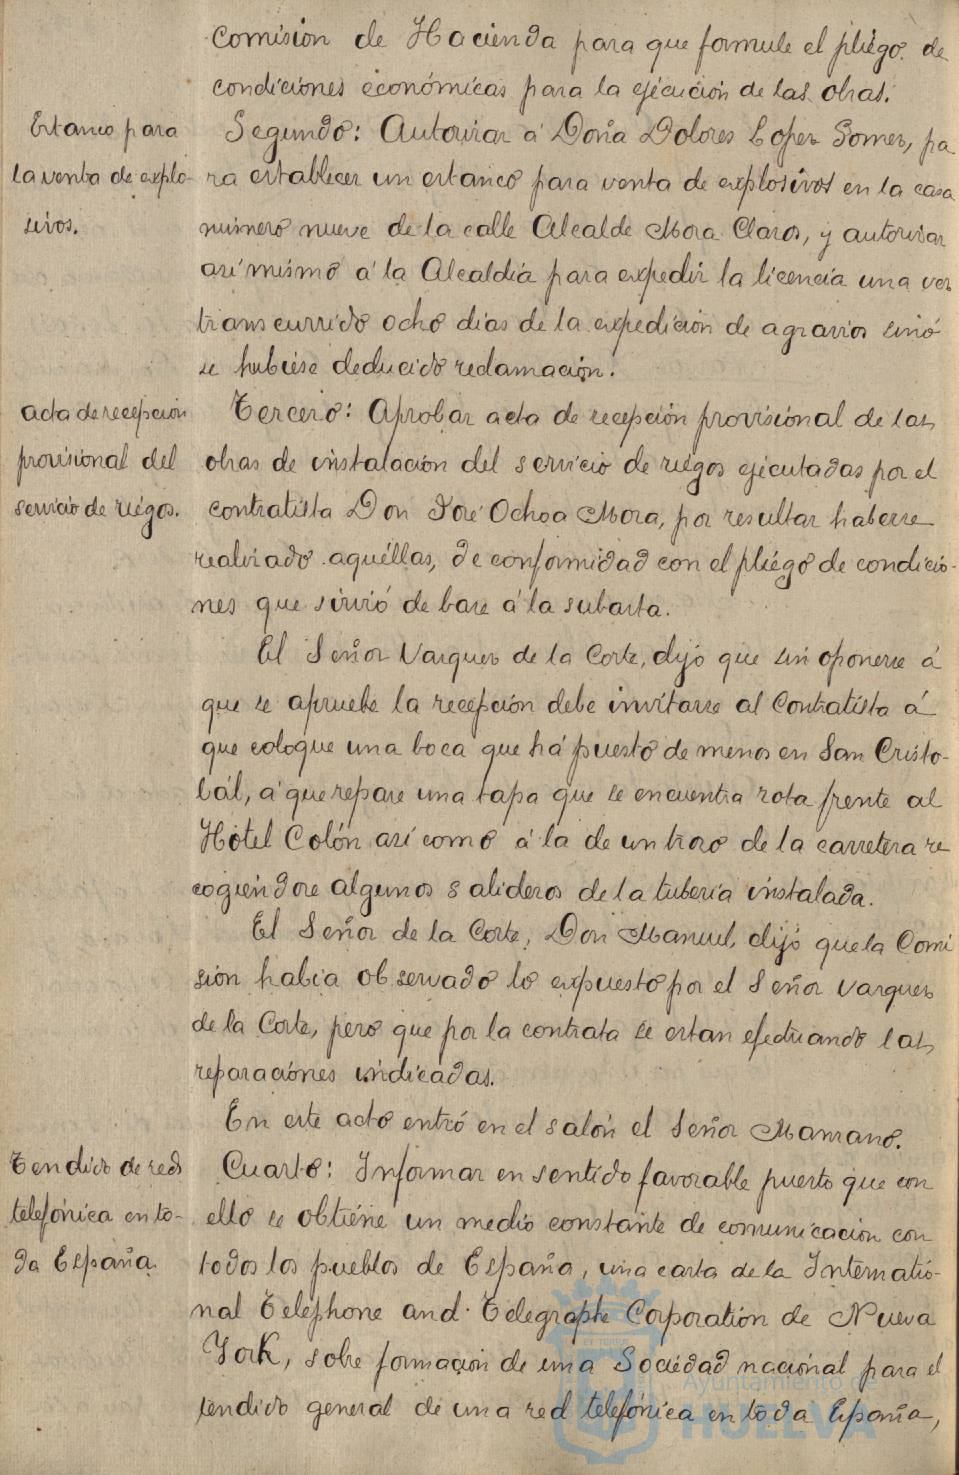 comision de Hacienda para que formule el pliego de
condiciones económicas para la ejecución de las obras.
Estanco para
la venta de explo-
sivos.
Segundo: Autorizar á Doña Dolores Lopez Gomez, pa
ra establecer un estanco para venta de explosivos en la casa
número nueve de la calle Alcalde Mora Claros, y autorizar
asimismo á la Alcaldía para expedir la licencia una vez
transcurrido ocho dias de la expedición de agravios sinó
se hubiese deducido reclamación.
acta de recepción
provisional del
servicio de riegos.
Tercero: Aprobar acta de recepción provisional de las
obras de instalación del servicio de riegos ejecutadas por el
contratista Don José Ochoa Mora, por resultar haberse
realizado aquéllas, de conformidad con el pliego de condicio-
nes que sirvió de base á la subasta.
El Señor Vazquez de la Corte, dijó que sin oponerse á
que se apruebe la recepción debe invitarse al Contratista á
que coloque una boca que há puesto de menos en San Cristo-
bál, á que repare una tapa que se encuentra rota frente al
Hotel Colón así como á la de un trozo de la carretera re
cogiendose algunos salideros de la tuberia instalada.
El Señor de la Corte, Don Manuel, dijó que la Comi
sión habia observado lo expuesto por el Señor Vazquez
de la Corte, pero que por la contrata se estan efectuando las
reparaciones indicadas.
En este acto entró en el salón el Señor Manzano.
Tendido de red
telefónica en to-
da España.
Cuarto: Informar en sentido favorable puesto que con
ello se obtiene un medio constante de comunicación con
todos los pueblos de España, una carta de la Internatio-
nal Telephone and Telegraphe Corporation de Nueva
York, sobre formación de una Sociedad nacional para el
tendido general de una red telefónica en toda España,
Ayuntamiento de
HUELVA